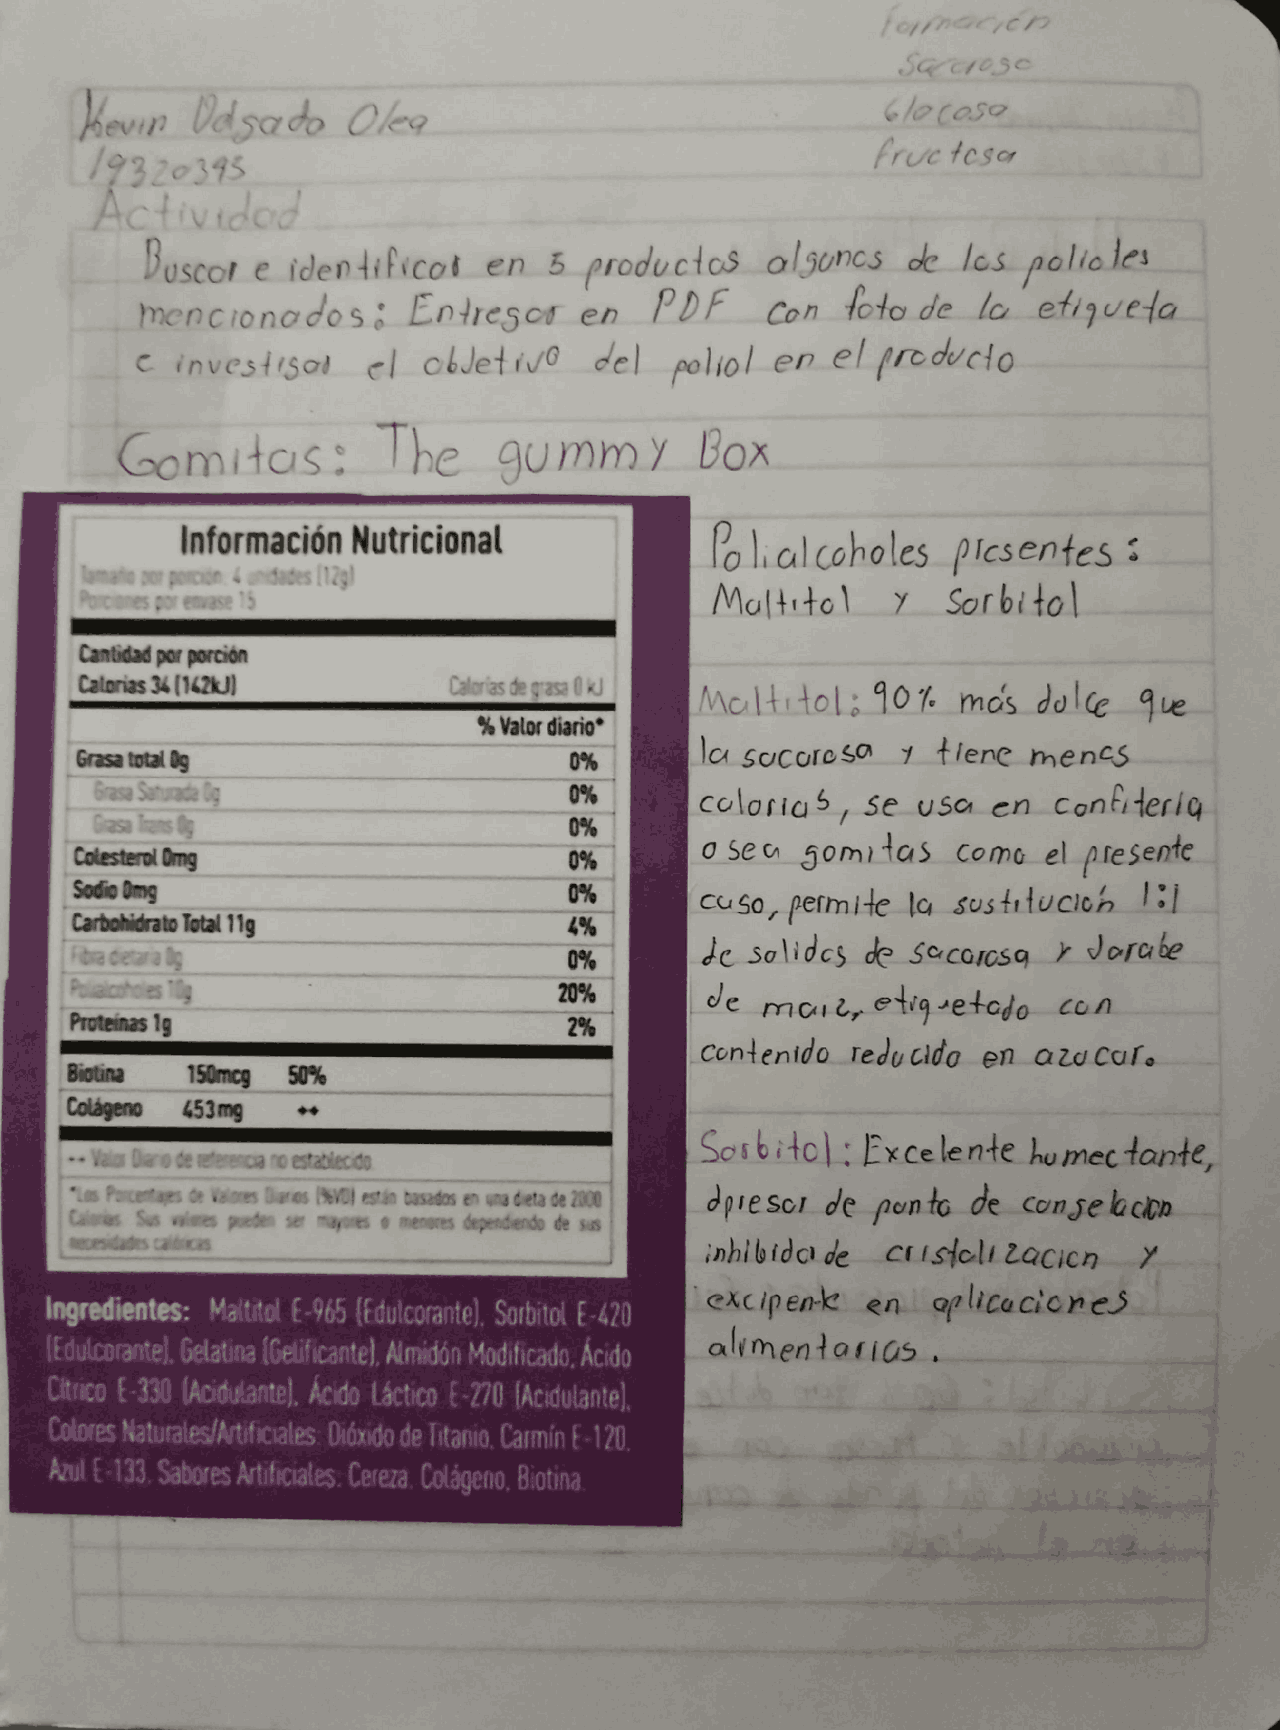 formación
Sacarosa
Glocosa
fructosa
Kevin Delgado Olea
19320395
Actividad
Buscar e identificar en 5 productos algunos de los polioles
mencionados: Entregar en PDF con foto de la etiqueta
e investigar el objetivo del poliol en el producto
Gomitas: The gummy Box
Información Nutricional
Tamaño por porción: 4 unidades (12g)
Porciones por envase 15
Cantidad por porción
Calorias 34 (142kJ) Calorías de grasa 0 kJ
% Valor diario*
Grasa total 0g 0%
Grasa Saturada 0g 0%
Grasa Trans 0g 0%
Colesterol 0mg 0%
Sodio 0mg 0%
Carbohidrato Total 11g 4%
Fibra dietaria 0g 0%
Polialcoholes 10g 20%
Proteínas 1g 2%
Biotina 150mcg 50%
Colágeno 453mg ++
++ Valor Diario de referencia no establecido
*Los Porcentajes de Valores Diarios (%VD) están basados en una dieta de 2000
Calorías. Sus valores pueden ser mayores o menores dependiendo de sus
necesidades calóricas
Ingredientes: Maltitol E-965 (Edulcorante), Sorbitol E-420
(Edulcorante), Gelatina (Gelificante), Almidón Modificado, Ácido
Cítrico E-330 (Acidulante), Ácido Láctico E-270 (Acidulante),
Colores Naturales/Artificiales: Dióxido de Titanio, Carmín E-120,
Azul E-133, Sabores Artificiales: Cereza, Colágeno, Biotina.
Polialcoholes presentes:
Maltitol y Sorbitol
Maltitol: 90% más dulce que
la sacarosa y tiene menos
calorias, se usa en confiteria
o sea gomitas como el presente
caso, permite la sustitución 1:1
de solidos de sacarosa y Jarabe
de maiz, etiquetado con
contenido reducido en azucar.
Sorbitol: Excelente humectante,
dpresor de punto de congelacion
inhibidor de cristalizacion y
excipente en aplicaciones
alimentarias.